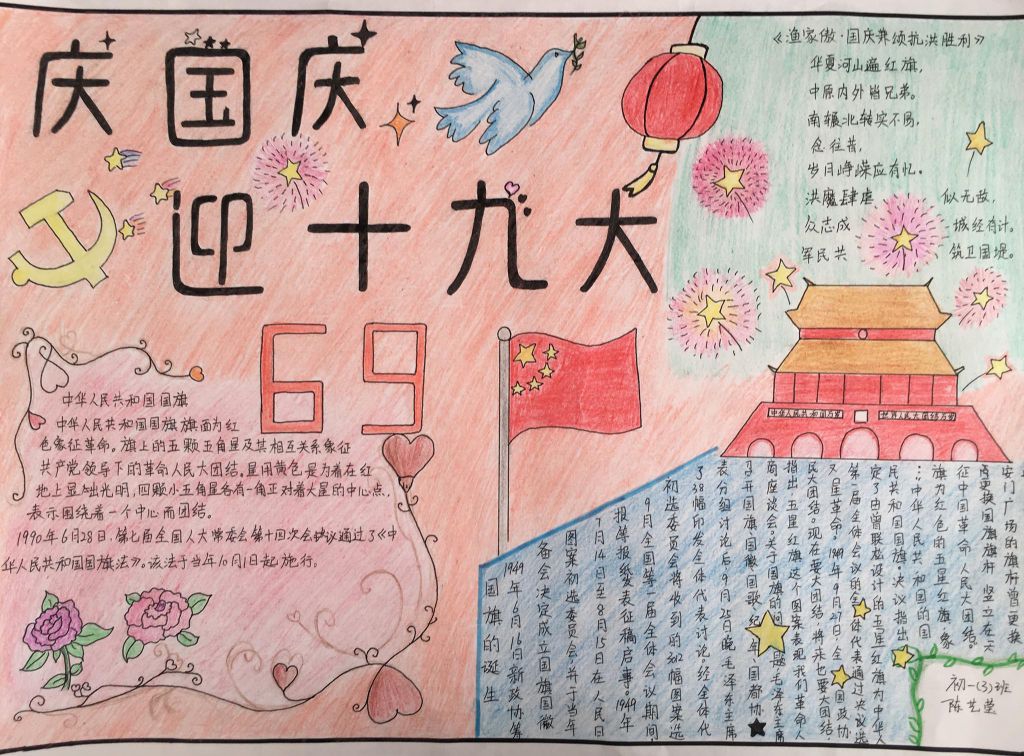 庆国庆
迎十九大
69
《渔家傲·国庆并颂抗洪胜利》
华夏河山遍红旗，
中原内外皆兄弟。
南辗北转实不易，
念往昔，
岁月峥嵘应有忆。
洪魔肆虐 似无敌，
众志成 城经有计。
军民共 筑卫国堤。
中华人民共和国万岁
世界人民大团结万岁
中华人民共和国国旗
中华人民共和国国旗旗面为红
色象征革命。旗上的五颗五角星及其相互关系象征
共产党领导下的革命人民大团结。星用黄色是为着在红
地上显出光明，四颗小五角星各有一角正对着大星的中心点，
表示围绕着一个中心而团结。
1990年6月28日，第七届全国人大常委会第十四次会议通过了《中
华人民共和国国旗法》。该法于当年10月1日起施行。
国旗的诞生
1949年6月16日新政协筹
备会决定成立国旗国徽
图案初选委员会并于当年
7月14日至8月15日在人民日
报等报纸发表征稿启事。1949年
9月全国第一届全体会议期间，
初选委员会将收到的图案选
了38幅印发全体代表讨论。经全体代
表分组讨论后9月25日晚毛泽东主席
召开国旗国徽国歌纪年、国都协
商座谈会。关于国旗的问题毛泽东主席
指出五星红旗这个图案表现我们革命人
民大团结。现在要大团结，将来也要大团结，
又是革命。1949年9月27日，全国政协
第一届全体会议的全体代表通过决议选
定了由曾联松设计的五星红旗为中华人
民共和国国旗。决议指出
：中华人民共和国的国
旗为红色的五星红旗，象
征中国革命人民大团结。
再更换国旗旗杆竖立在天
安门广场的旗杆曾更换
初一(3)班
陈艺莹